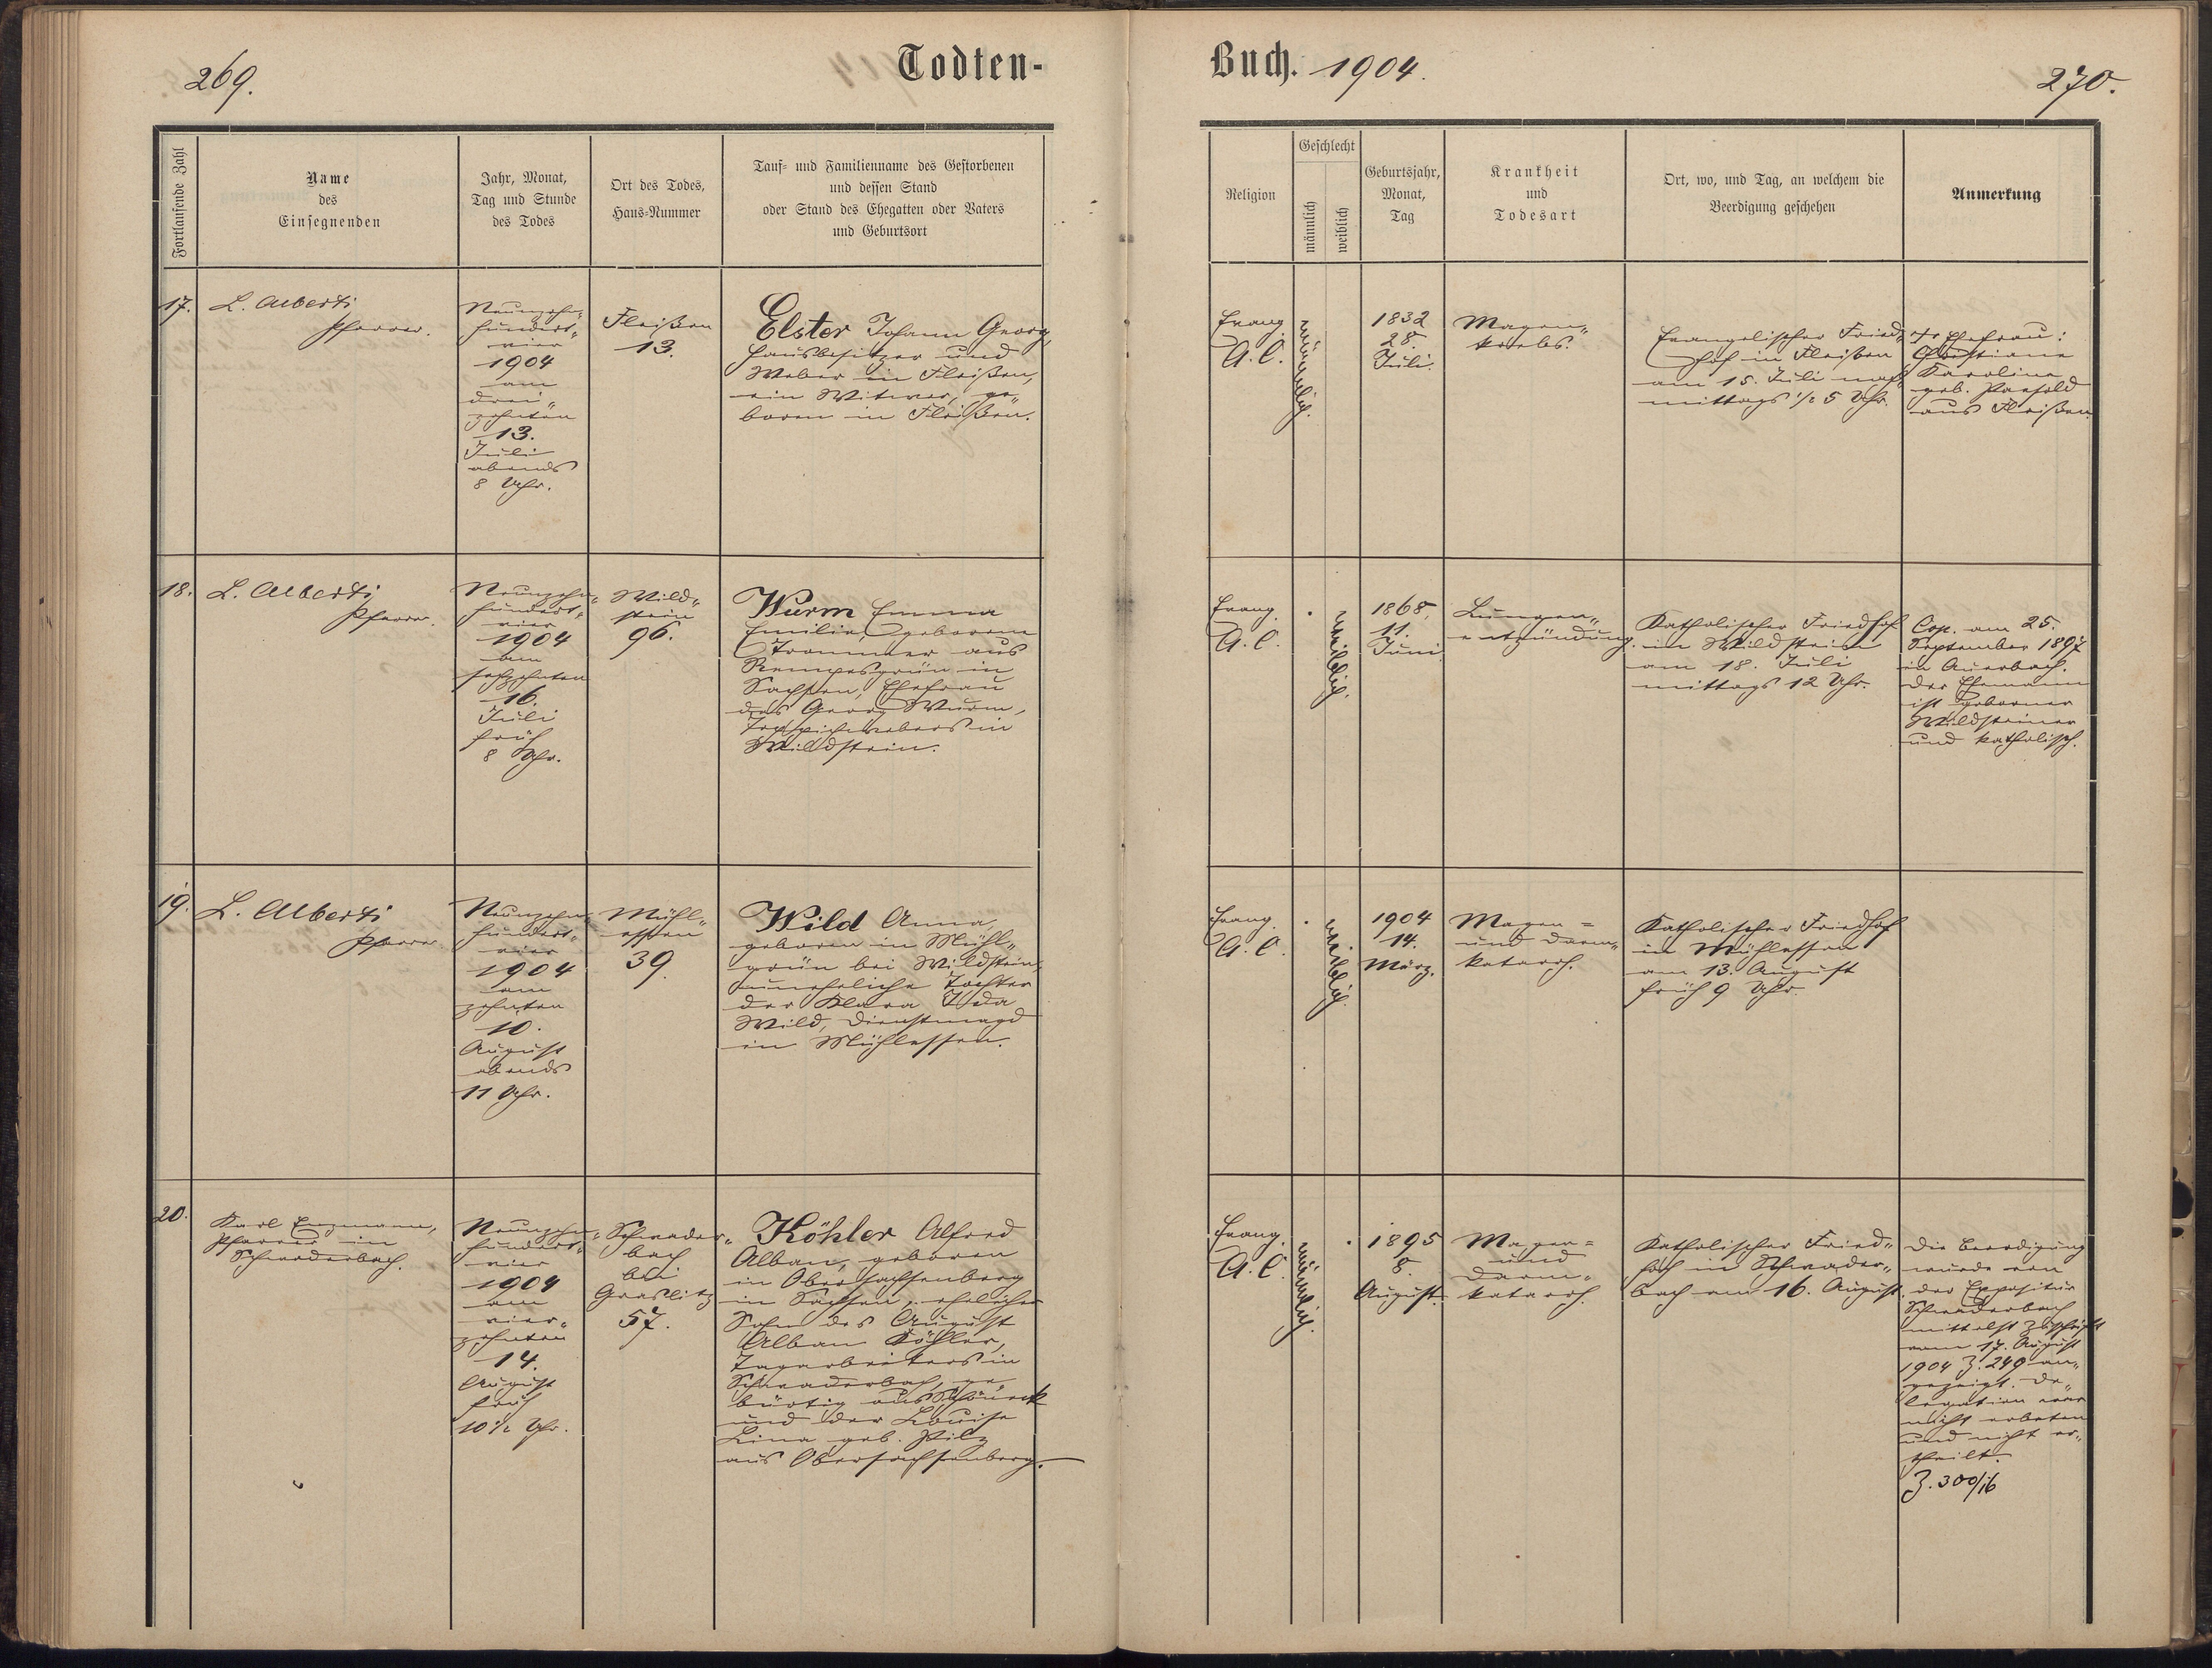 269.
Todten-
Buch. 1904.
270.
Fortlaufende Zahl
Name
des
Einsegnenden
Jahr, Monat,
Tag und Stunde
des Todes
Ort des Todes,
Haus-Nummer
Tauf- und Familienname des Gestorbenen
und dessen Stand
oder Stand des Ehegatten oder Vaters
und Geburtsort
Religion
Geschlecht
männlich
weiblich
Geburtsjahr,
Monat,
Tag
Krankheit
und
Todesart
Ort, wo, und Tag, an welchem die
Beerdigung geschehen
Anmerkung
17.
L. Alberti
Pfarrer.
Neunzehn-
hundert-
vier
1904
am
drei-
zehnten
13.
Juli
abends
8 Uhr.
Fleißen
13.
Elster Johann Georg,
Hausbesitzer und
Weber in Fleißen,
ein Witwer, ge-
boren in Fleißen.
Evang.
A. C.
männlich.
1832
28.
Juli.
Magen-
krebs.
Evangelischer Fried-
hof in Fleißen
am 15. Juli nach-
mittags 1/2 5 Uhr.
Ehefrau:
Christiane
Karoline
geb.
aus Fleißen.
18.
L. Alberti
Pfarrer.
Neunzehn-
hundert-
vier
1904
am
sechzehnten
16.
Juli
früh
8 Uhr.
Wild-
stein
96.
Wurm Emma
Emilie, geborene
Trommer aus
Rempesgrün in
Sachsen, Ehefrau
des Georg Wurm,
Teppichwebers in
Wildstein.
Evang.
A. C.
weiblich.
1868,
11.
Juni.
Lungen-
entzündung.
Katholischer Friedhof
in Wildstein
am 18. Juli
mittags 12 Uhr.
Cop. am 25.
September 1897
in Auerbach.
Der Ehemann
ist geborener
Wildsteiner
und katholisch.
19.
L. Alberti
Pfarrer
Neunzehn-
hundert-
vier
1904
am
zehnten
10.
August
abends
11 Uhr.
Mühl-
essen
39.
Wild Anna
geboren in Mühl-
grün bei Wildstein,
uneheliche Tochter
der Klara Ida
Wild, Dienstmagd
in Mühlessen.
Evang.
A. C.
weiblich.
1904
14.
März.
Magen-
und Darm-
katarrh.
Katholischer Friedhof
in Mühlessen
am 13. August
früh 9 Uhr.
20.
Karl Enzmann,
Pfarrer in
Schwaderbach.
Neunzehn-
hundert-
vier
1904
am
vier-
zehnten
14.
August
früh
10 1/2 Uhr.
Schwader-
bach
bei
Graslitz
57.
Köhler Alfred
Alban, geboren
in Obersachsenberg
in Sachsen, ehelicher
Sohn des August
Alban Köhler,
Tagarbeiters in
Schwaderbach, ge-
bürtig aus Schöneck
und der Louise
Lina geb. Pilz
aus Obersachsenberg.
Evang.
A. C.
männlich.
1895
8.
August.
Magen-
und
Darm-
katarrh.
Katholischer Fried-
hof in Schwader-
bach am 16. August.
Die Beerdigung
wurde von
der Expositur
Schwaderbach
mittelst Zuschrift
vom 17. August
1904 Z. 249 an-
gezeigt. De-
legation war
nicht erbeten
und nicht er-
theilt.
Z. 300/16